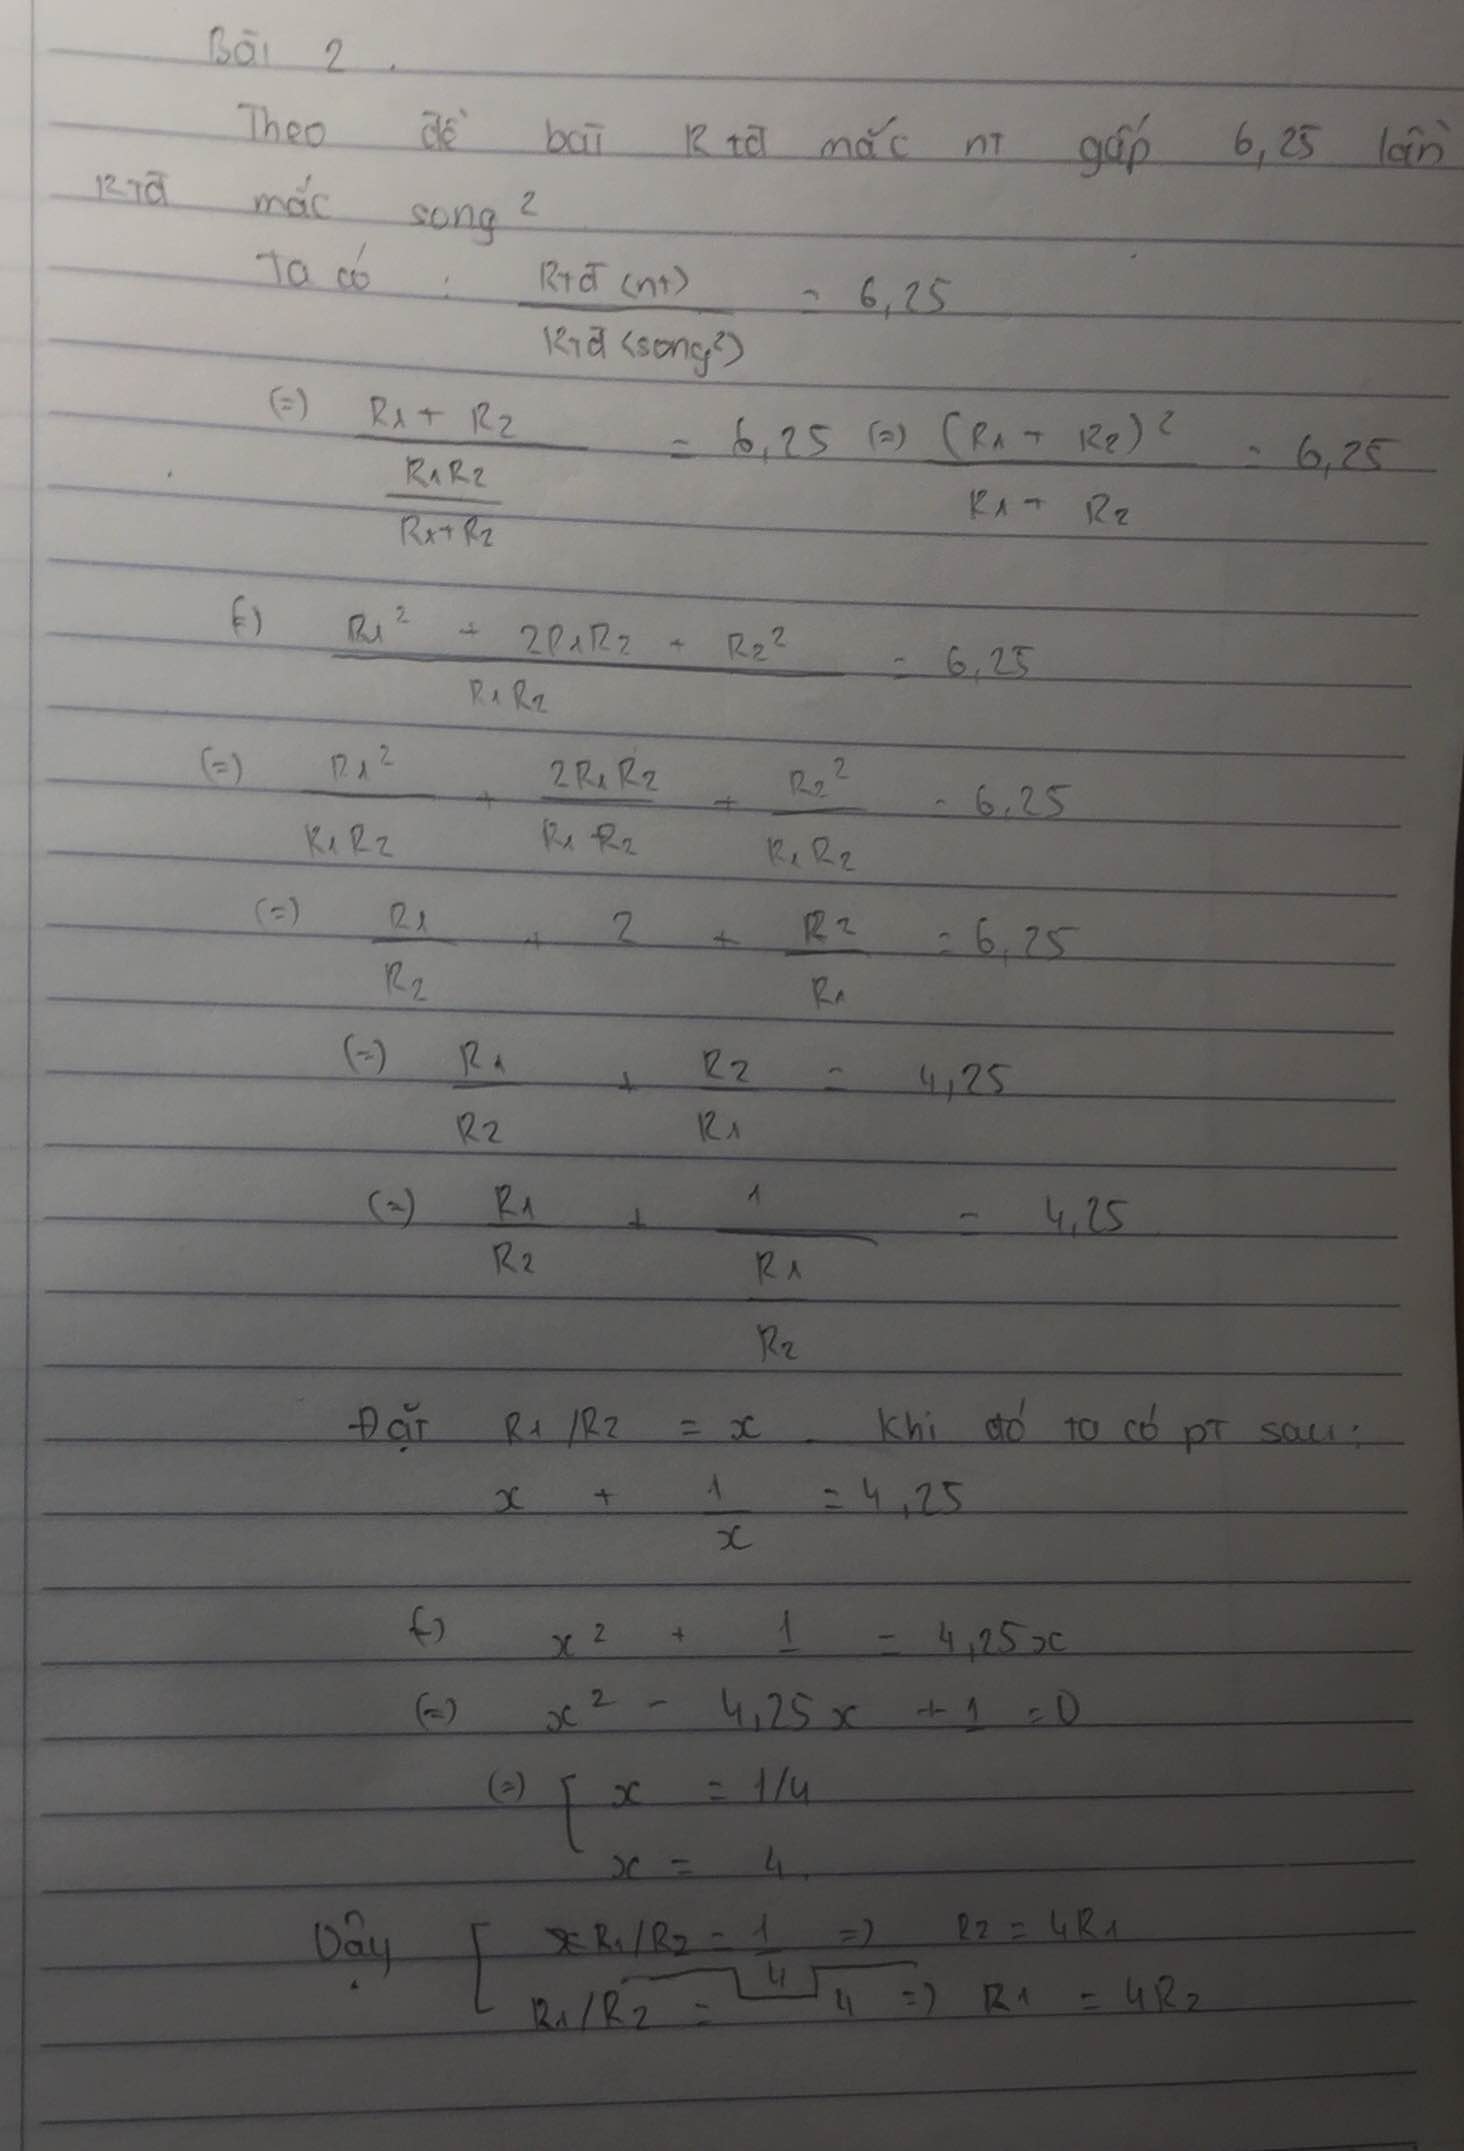 Bài 2.
Theo đề bài Rtđ mắc nt gấp 6,25 lần
Rtđ mắc song²
Ta có : Rtđ (nt) / Rtđ (song²) = 6,25
(=) (R1 + R2) / (R1R2 / (R1+R2)) = 6,25 (=) (R1 + R2)² / (R1 + R2) = 6,25
(=) (R1² + 2R1R2 + R2²) / R1R2 = 6,25
(=) R1² / R1R2 + 2R1R2 / R1R2 + R2² / R1R2 = 6,25
(=) R1 / R2 + 2 + R2 / R1 = 6,25
(=) R1 / R2 + R2 / R1 = 4,25
(=) R1 / R2 + 1 / (R1 / R2) = 4,25
Đặt R1/R2 = x . Khi đó ta có pt sau:
x + 1 / x = 4,25
(=) x² + 1 = 4,25x
(=) x² - 4,25x + 1 = 0
(=) [ x = 1/4
x = 4
Vậy [ R1/R2 = 1 / 4 => R2 = 4R1
R1/R2 = 4 => R1 = 4R2